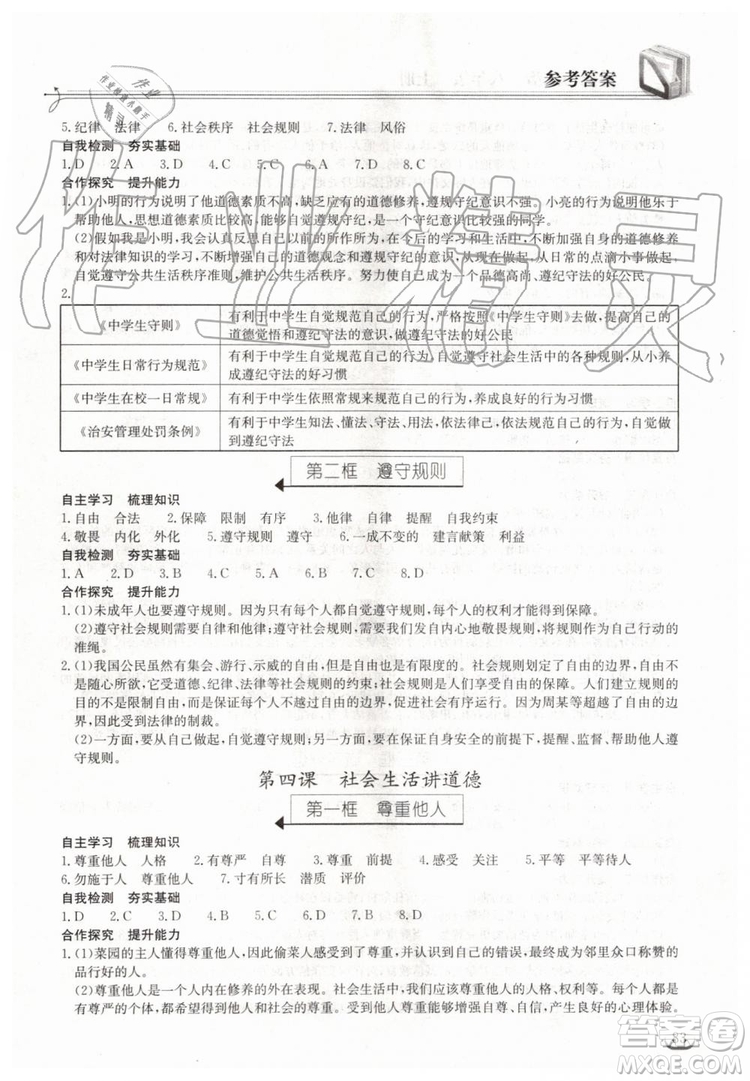 参考答案
5.纪律　法律　6.社会秩序　社会规则　7.法律　风俗
自我检测　夯实基础
1.D　2.A　3.D　4.C　5.C　6.C　7.A　8.D
合作探究　提升能力
1.(1)小明的行为说明了他道德素质不高,缺乏应有的道德修养,遵规守纪意识不强。小亮的行为说明他乐于
帮助他人,思想道德素质比较高,能够自觉遵规守纪,是一个守纪意识比较强的同学。
(2)假如我是小明,我会认真反思自己以前的所作所为,在今后的学习和生活中,不断加强自己的道德修养和
对法律知识的学习,努力增强自己的道德观念和遵规守纪的观念;从我做起,从日常生活中的点滴小事做起,
自觉遵守公共生活秩序准则,维护公共生活秩序。努力使自己成为一个品德高尚、遵纪守法的好公民。
2.
《中学生守则》
有利于中学生自觉规范自己的行为,严格按照《中学生守则》去做,提高自己的
道德觉悟和遵纪守法的意识,做遵纪守法的好公民
《中学生日常行为规范》
有利于中学生自觉规范自己的行为,自觉遵守社会生活中的各种规则,从小养
成遵纪守法的好习惯
《中学生在校一日常规》
有利于中学生依照常规来规范自己的行为,养成良好的行为习惯
《治安管理处罚条例》
有利于中学生知法、懂法、守法、用法,依法律己,依法规范自己的行为,自觉做
到遵纪守法
第二框　遵守规则
自主学习　梳理知识
1.自由　合法　2.保障　限制　有序　3.他律　自律　提醒　自我约束
4.敬畏　内化　外化　5.遵守规则　遵守　6.一成不变的　建言献策　利益
自我检测　夯实基础
1.A　2.D　3.B　4.C　5.A　6.B　7.B　8.C
合作探究　提升能力
1.(1)未成年人也要遵守规则。因为只有每个人都自觉遵守规则,每个人的权利才能得到保障。
(2)遵守社会规则需要自律和他律;遵守社会规则,需要我们发自内心地敬畏规则,将规则作为自己行动的
准绳。
2.(1)我国公民虽然有集会、游行、示威的自由,但自由也是有限度的。社会规则划定了自由的边界,自由不
是随心所欲,它受道德、纪律、法律等社会规则的约束;社会规则是人们享有自由的保障。人们建立规则的目
的不是限制自由,而是保证每个人不越过自由的边界,促进社会有序运行。因为周某等越过自由的边界,扰
乱社会秩序,所以受到法律的制裁。
(2)一方面,要从自己做起,自觉遵守规则;另一方面,要在保证自身安全的前提下,提醒、监督、帮助他人遵
守规则。
第四课　社会生活讲道德
第一框　尊重他人
自主学习　梳理知识
1.尊重他人　人格　2.有尊严　自尊　3.尊重　前提　4.感受　关注　5.平等　平等待人
6.勿施于人　尊重他人　7.寸有所长　潜质　评价
自我检测　夯实基础
1.D　2.D　3.D　4.C　5.C　6.D　7.B　8.D
合作探究　提升能力
1.(1)菜园的主人懂得尊重他人,因此偷菜人感受到了尊重,并认识到自己的错误,最终成为邻里众口称赞的
品行好的人。
(2)尊重他人是一个人内在修养的外在表现。社会生活中,我们应尊重他人的人格、权利等。每个人都是有
尊严的个体,都希望得到他人和社会的尊重。受到尊重能够增强自尊、自信,产生良好的心理体验。
83
作业精灵
答案圈